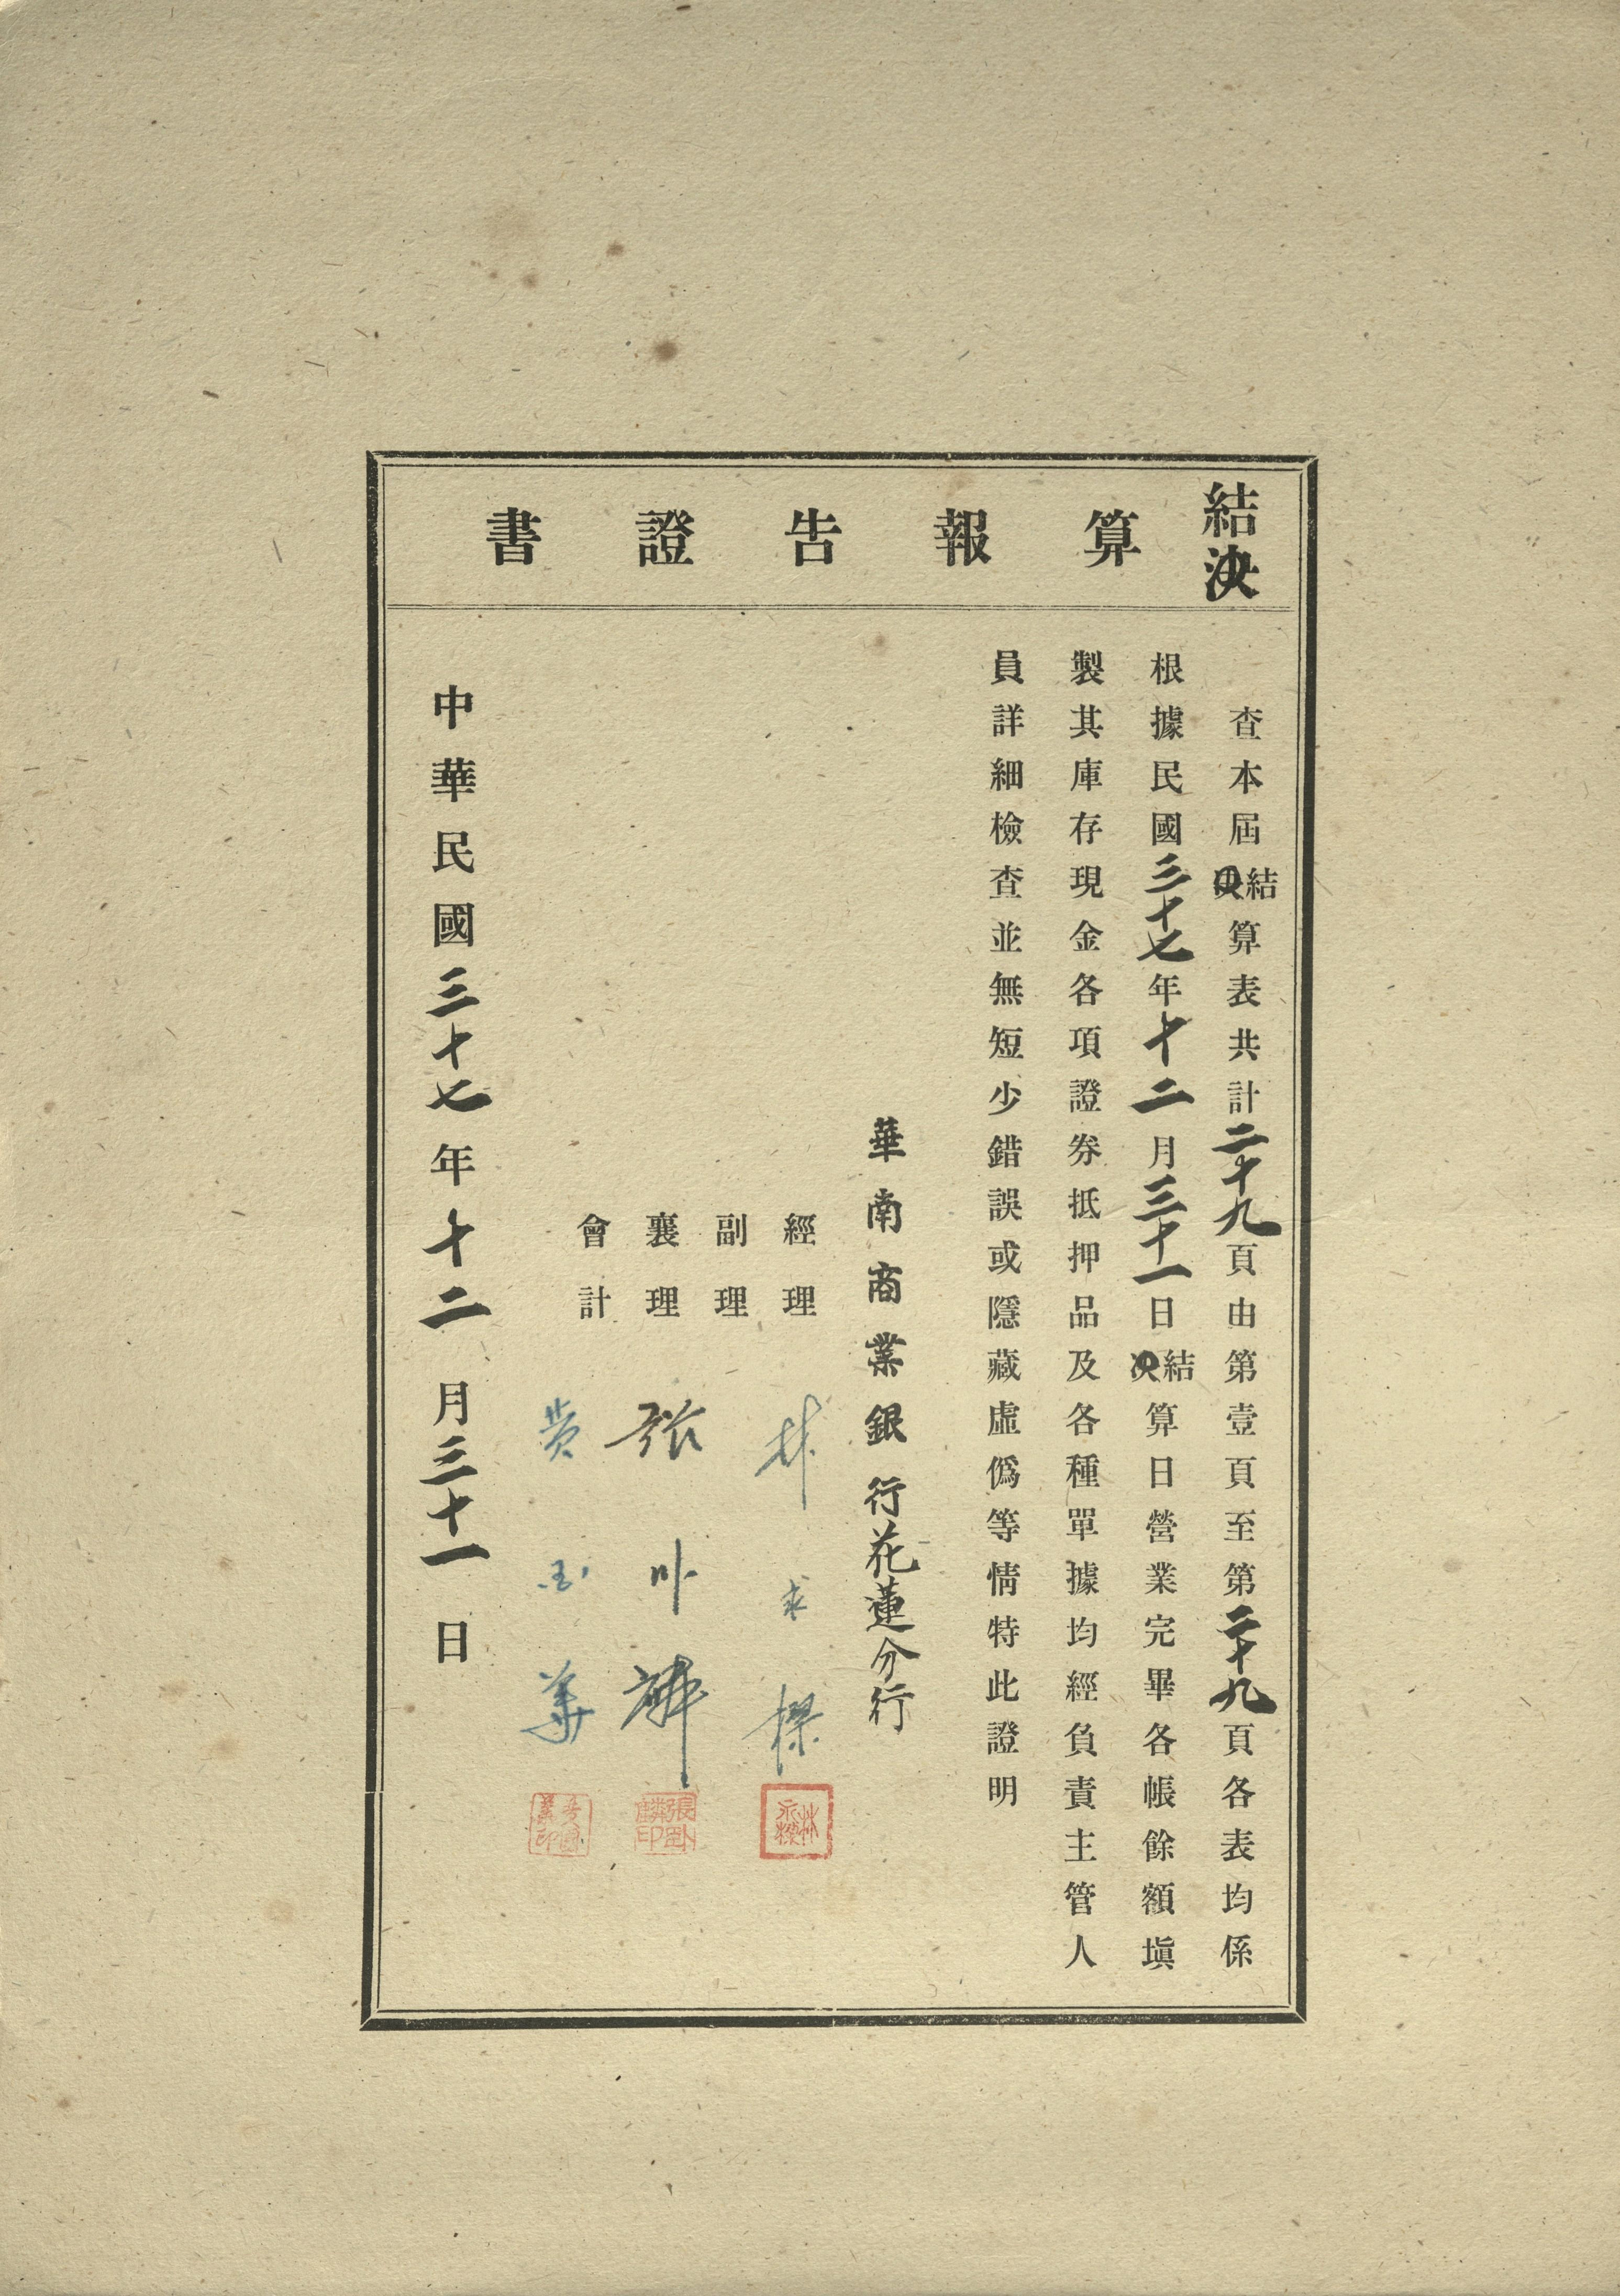 結決算報告證書
查本屆結決算表共計二十九頁由第壹頁至第二十九頁各表均係
根據民國三十七年十二月三十一日結決算日營業完畢各帳餘額塡
製其庫存現金各項證券抵押品及各種單據均經負責主管人
員詳細檢查並無短少錯誤或隱藏虛僞等情特此證明
華南商業銀行花蓮分行
經理 林永樑
林永樑
副理
襄理 張卧麟
張卧麟印
會計 黃
中華民國三十七年十二月三十一日